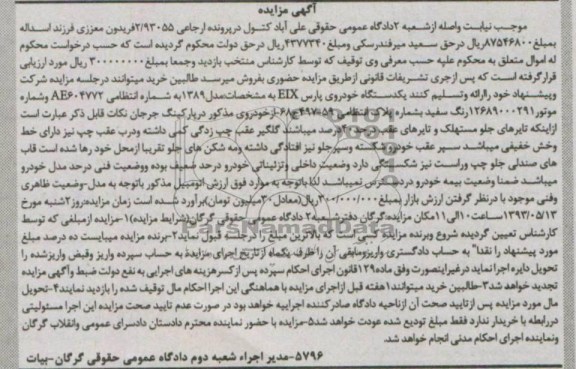 آگهی مزایده
موجب نیابت واصله ازشعبه ۲دادگاه عمومی حقوقی علی آباد کتول درپرونده ارجاعی ۲/۹۳۰۵۵فریدون معززی فرزند اسداله
بمبلغ۸۷۵۴۶۸۰۰ریال درحق سعید میرفندرسکی ومبلغ۴۳۷۷۳۴۰ریال درحق دولت محکوم گردیده است که حسب درخواست محکوم
له اموال متعلق به محکوم علیه حسب معرفی وی توقیف که توسط کارشناس منتخب بازدید وجمعا بمبلغ۳۰۰۰۰۰۰۰۰ ریال مورد ارزیابی
قرارگرفته است که پس ازجری تشریفات قانونی ازطریق مزایده حضوری بفروش میرسد طالبین خرید میتوانند درجلسه مزایده شرکت
وپیشنهاد خود راارائه وتسلیم کنند یکدستگاه خودروی پارس EIX به مشخصات مدل۱۳۸۹به شماره انتظامی AE۶۰۴۷۷۲ وشماره
موتور۱۲۶۸۹۰۰۰۲۹۱رنگ سفید بشماره پلاک انتظامی خودروی مذکور درپارکینگ جرجان نکات قابل ذکر عبارت است
ازاینکه تایرهای جلو مستهلک و تایرهای عقب درصد میباشند گلگیر عقب چپ زدگی کمی داشته ودرب عقب چپ نیز دارای خط
وخش خفیفی میباشد سپر عقب خودرو شکسته وسپرجلو نیز افتادگی داشته ومه شکن های جلو تقریبا ازمحل خود رها شده است قاب
های صندلی جلو چپ وراست نیز شکستگی دارد وضعیت داخلی وتزئیناتی خودرو درحد ضعیف بوده ووضعیت فنی درحد مدل خودرو
میباشد ضمنا وضعیت بیمه خودرو دردسترس نمیباشد لذا باتوجه به موارد فوق ارزش اتومبیل مذکور باتوجه به مدل-وضعیت ظاهری
وفنی موجود با درنظر گرفتن ارزش بازار بمبلغ۳۰۰/۰۰۰/۰۰۰ریال(معادل۳۰میلیون تومان)برآورد شده است زمان مزایده:روز۲شنبه مورخ
۱۳۹۳/۰۵/۱۳ساعت۱۰الی۱۱مکان مزایده:گرگان دفترشعبه۲ دادگاه عمومی حقوقی گرگان(شرایط مزایده)۱-مزایده ازمبلغی که توسط
کارشناس تعیین گردیده شروع وبرنده مزایده کسی است که بالاترین مبلغ را درجلسه قبول نماید۲-برنده مزایده میبایست ده درصد مبلغ
مورد پیشنهاد را نقدا" به حساب دادگستری واریزومابقی آن را ظرف یکماه ازتاریخ اجرای مزایده به حساب سپرده واریز وقبض واریزشده را
تحویل دایره اجرا نماید درغیراینصورت وفق ماده۱۲۹قانون اجرای احکام سپرده پس ازکسرهزینه های اجرایی به نفع دولت ضبط وآگهی مزایده
تجدید خواهد شد۳-طالبین خرید میتوانند۱هفته قبل ازاجرای مزایده با هماهنگی این اجرا احکام مال توقیف شده را بازدید نمایند۴-تحویل
مال مورد مزایده پس ازتایید صحت آن ازناحیه دادگاه صادرکننده اجراییه خواهد بود در صورت عدم تایید صحت مزایده این اجرا مسئولیتی
دررابطه با خریدار ندارد فقط مبلغ تودیع شده عودت خواهد شد۵-مزایده با حضور نماینده محترم دادستان دادسرای عمومی وانقلاب گرگان
ونماینده اجرای احکام مدنی انجام خواهد شد.
۵۷۹۶-مدیر اجراء شعبه دوم دادگاه عمومی حقوقی گرگان-بیات